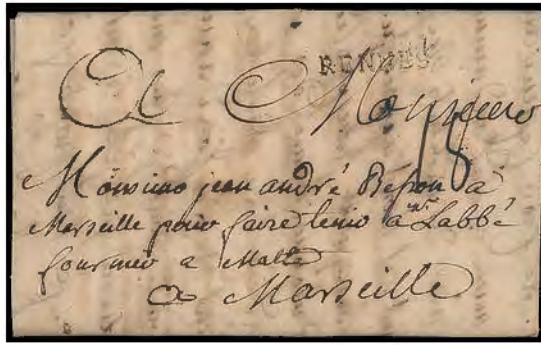 RENNES
A Monsieur
18
Monsieur jean andré Bésson a
Marseille pour faire tenir a Mr Labbé
fournier a Malte
a Marseille